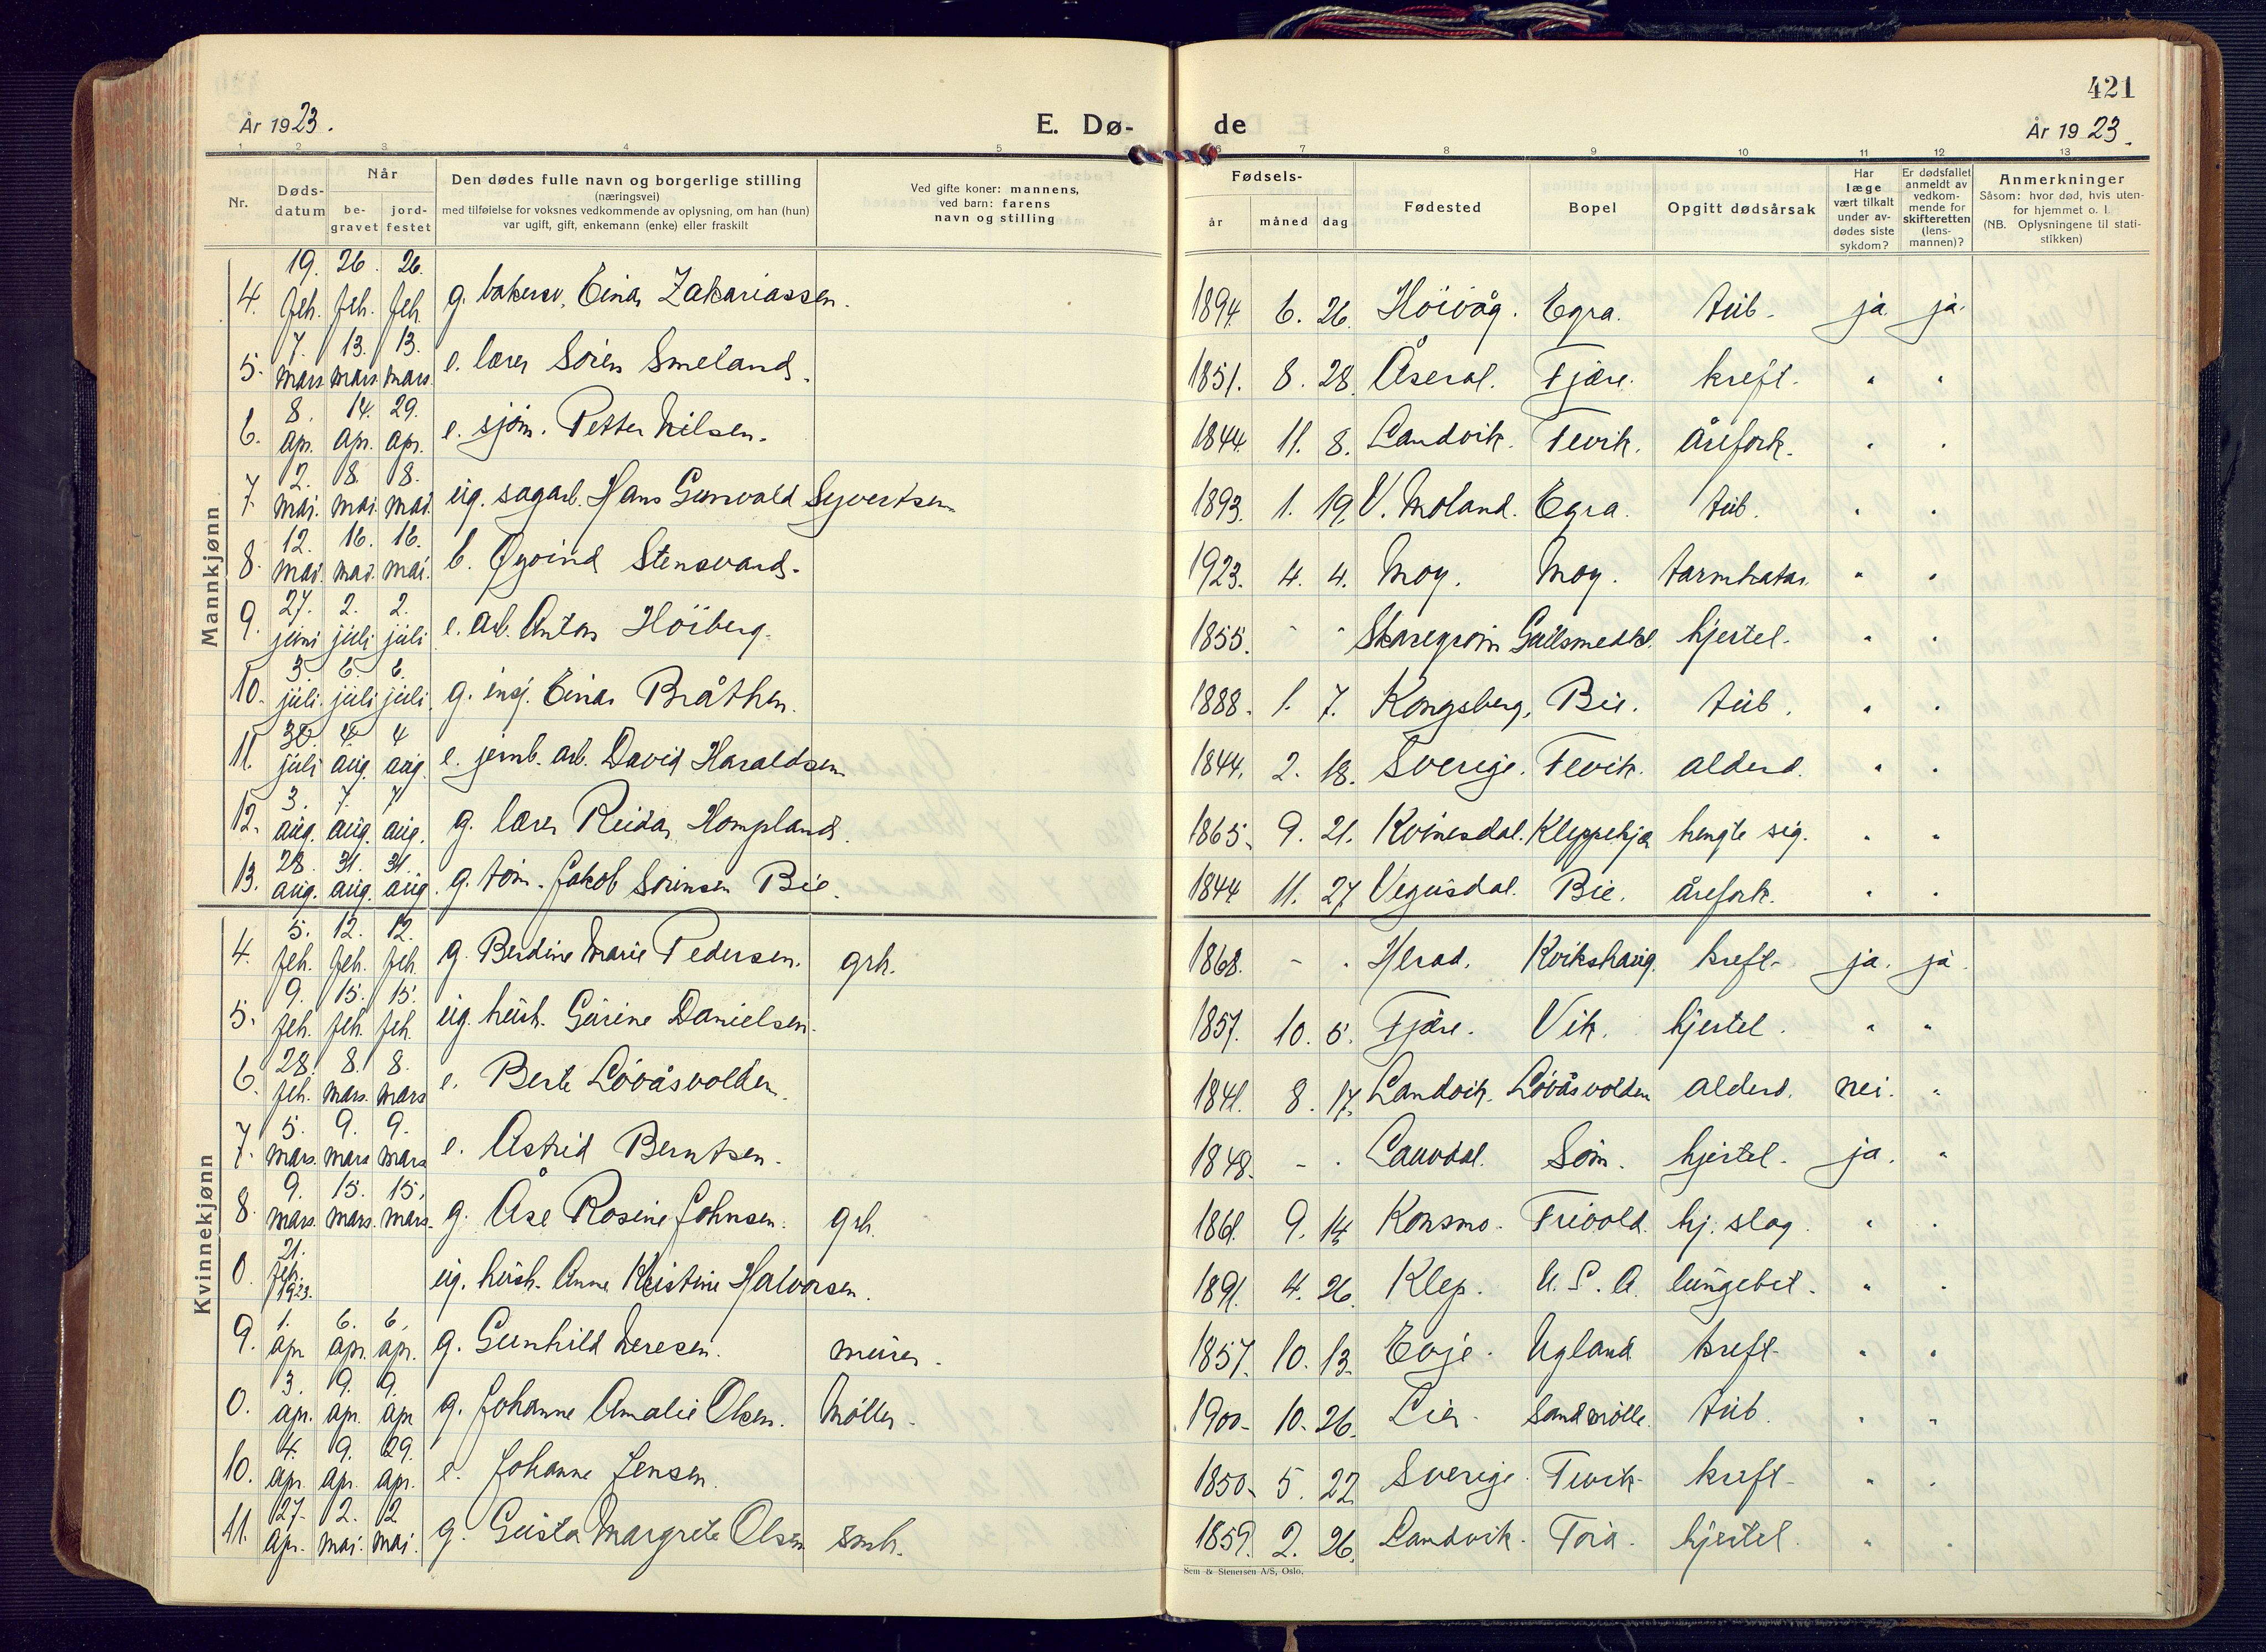 421
År 1923.
E. Dø-
de
År 1923.
1 2 3 4 5 6 7 8 9 10 11 12 13
Nr.
Døds-
datum
Når
be-
gravet
jord-
festet
Den dødes fulle navn og borgerlige stilling
(næringsvei)
med tilføielse for voksnes vedkommende av oplysning, om han (hun)
var ugift, gift, enkemann (enke) eller fraskilt
Ved gifte koner: mannens,
ved barn: farens
navn og stilling
Fødsels-
år måned dag
Fødested
Bopel
Opgitt dødsårsak
Har
læge
vært tilkalt
under av-
dødes siste
sykdom?
Er dødsfallet
anmeldt av
vedkom-
mende for
skifteretten
(lens-
mannen)?
Anmerkninger
Såsom: hvor død, hvis uten-
for hjemmet o. l.
(NB. Oplysningene til stati-
stikken)
Mannkjønn
4. 19. feb. 26. feb. 26. feb. g. bakersv. Einar Zakariassen. 1894 6. 26. Höivåg. Egra. tub. ja. ja.
5. 7. mars 13. mars 13. mars. e. lærer Sören Smeland. 1851. 8. 28. Åseral. Fjære. kreft. " "
6. 8. apr. 14. apr. 29. apr. e. sjöm. Petter Nilsen. 1844. 11. 8. Landvik. Fevik. årefork. " "
7. 2. mai. 8. mai. 8. mai. ug. sagarb. Hans Gunvald Syvertsen. 1893. 1. 19. V. Moland. Egra. tub. " "
8. 12. mai. 16. mai. 16. mai. b. Øyvind Stensvand. 1923. 4. 4. Moy. Moy. tarmkatar. " "
9. 27. juni 2. juli 2. juli e. arb. Anton Höiberg. 1855. - - hjertel. " "
10. 3. juli. 6. juli 6. juli. g. insj. Einar Bråthen. 1888. 1. 7. Kongsberg. Bie. tub. " "
11. 30. juli 4. aug. 4 aug. e. jernb. arb. David Haraldsen 1844. 2. 18. Sverige. Fevik. alderd. " "
12. 3. aug. 7. aug. 7 aug. g. lærer Reidar Hompland. 1865. 9. 21. Kvinesdal. Kleppekjær hengte sig. " "
13. 28. aug. 31. aug. 31. aug. g. töm. Jakob Sörensen Bie. 1844 11. 27 Vegusdal. Bie. årefork. " "
Kvinnekjønn
4. 5. feb. 12. feb. 12. feb. g. Berdine Marie Pedersen. grh. 1868. - - Herad. Kvikshaug. kreft. ja. ja.
5. 9. feb. 15. feb. 15. feb. ug. hush. Gurine Danielsen. 1857. 10. 5. Fjære. Vik. hjertel. " "
6. 28. feb. 8. mars. 8. mars e. Berte Lövåsvolden. 1841. 8. 17. Landvik. Lövåsvolden alderd. nei. "
7. 5. mars. 9. mars 9. mars e. Astrid Berntsen. 1848. - - Laudal. Söm. hjertel. ja. "
8. 9. mars. 15. mars. 15. mars. g. Åse Rosine Johnsen. grh. 1861. 9. 14. Konsmo. Frivold. hj. slag. " "
0. 21. feb. 1923. ug. hush. Anne Kristine Halvorsen. 1891. 4. 26. Klep. U. S. A. lungebet. " "
9. 1. apr 6. apr. 6. apr. g. Gunhild Teresen. murer. 1857. 10. 13. Evje. Ugland kreft. " "
0. 3. apr. 9. apr. 9. apr g. Johanne Amalie Olsen. Möller. 1900. 10. 26. Lier. Sandmölle. tub. " "
10. 4. apr. 9. apr. 29. apr. e. Johanne Jensen. 1850. 5. 22 Sverige. Fevik kreft. " "
11. 27. apr. 2. mai. 2 mai. g. Gusta Margrete Olsen smh. 1859. 2. 26. Landvik. hjertel. " "
Sem & Stenersen A/S, Oslo.